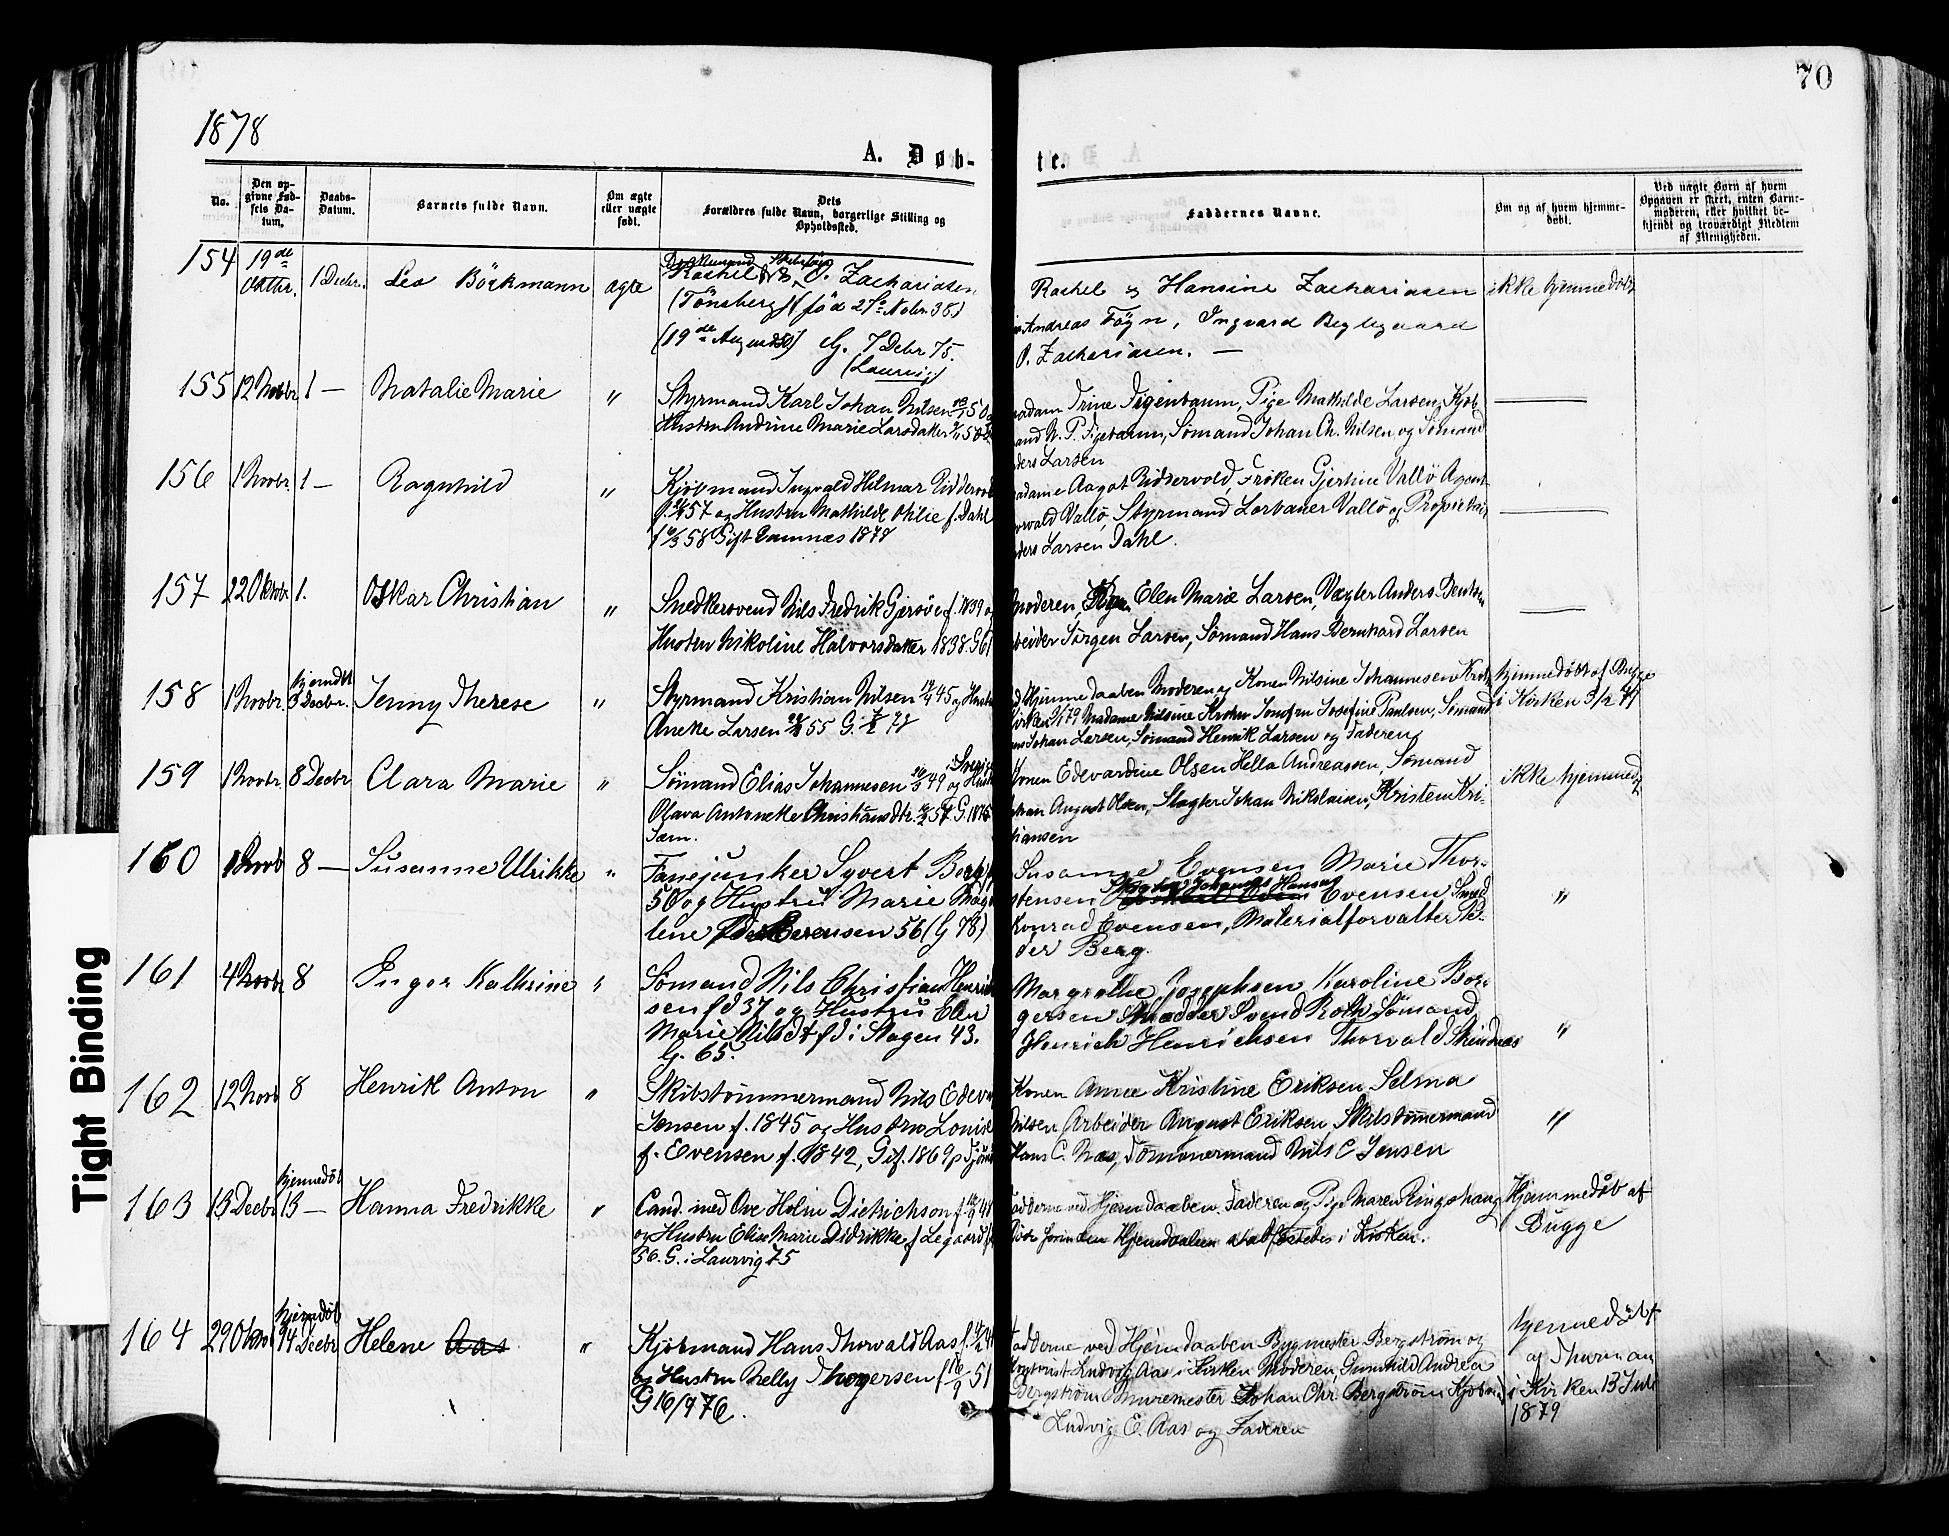 70
1878
A. Døb-
te.
No.
Den op-
givne Fød-
sels Da-
tum.
Daabs-
Datum.
Barnets fulde Navn.
Om ægte
eller uægte
født.
Dets
Forældres fulde Navn, borgerlige Stilling og
Opholdssted.
Faddernes Navne.
Om og af hvem hjemme-
døbt.
Ved uægte Børn af hvem
Opgaven er skeet, enten Barne-
moderen, eller hvilket be-
kjendt og troværdigt Medlem
af Menigheden.
154
19de
Oktbr.
1 Decbr.
Leo Börkmann
ægte
Rachel O. Zachariasen
(Tönsberg) (fød 21de Nobr. 38)
(19de August) G. 7 Debr 75.
(Laurvig)
Rachel & Hansine Zachariasen
Andreas Föyn, Ingvard Bryhgaard
O. Zachariasen. —
ikke hjemmedøbt
155
12 Novbr
1 —
Natalie Marie
"
Styrmand Karl Johan Nilsen 50
Hustru Andrine Marie Larsdatter 50
Madam Trine Figenbaum, Pige Mathilde Larsen, Kjøb-
mand N. P. Figenbaum, Sømand Johan Ch. Nilsen og Sømand
Anders Larsen
156
1 Novbr.
1 —
Ragnhild
"
Kjøbmand Ingvald Hilmar Riddervold
f. 57 og Hustru Mathilde Othilie f. Dahl
f 58 Gift Ramnæs 1878
Madame Aagot Riddervold, Frøken Gjertine Vallö Agent
Thorvald Vallö, Styrmand Vallö og Proprietær
Anders Larsen Dahl.
157
22 Oktobr
1.
Oskar Christian
"
Snedkersvend Nils Fredrik Gjersøe f. 1839 og
Hustru Nikoline Halvorsdatter 1838. G 61
Moderen, Elen Marie Larsen, Vægter Anders Bentsen
Arbeider Jørgen Larsen, Sømand Hans Bernhard Larsen
158
1 Novbr.
hjemdøbt
3 Decbr.
Jenny Therese
"
Styrmand Kristian Nilsen 45 og Hustru
Aneke Larsen 55 G. 78
Hjemmedaaben Moderen og Konen Nilsine Johannesen
Kirken 79 Madame Nilsine Jomfru Josefine Paulsen, Sømand
Johan Larsen, Sømand Henrik Larsen og Faderen
hjemmedøbt af Bugge
i Kirken
159
1 Novbr.
8 Decbr
Clara Marie
"
Sømand Elias Johannesen 49 og Hustru
Olava Antonette Christiansdtr. 57 G. 1876
Sem.
Konen Edevardine Olsen Hella Andreassen, Sømand
Johan August Olsen, Slagter Johan Nikolaisen, Kristen Kri-
stiansen
ikke hjemmed
160
1 Novb
8 —
Susanne Ulrikke
"
Fanejunker Syvert Berg
50 og Hustru Marie Mag
lene Evensen 56 (G 78)
Susanne Evensen Marie Thor-
stensen Slagter Johannes Hansen Evensen Smed
Konrad Evensen, Materialforvalter Pe-
der Berg.
"
161
4 Novbr
8
Inger Kathrine
"
Sømand Nils Christian Henrik
sen fd 37 og Hustru Elen
Marie Nilsdt fd i Slagen 43.
G. 65.
Margrethe Josephsen Karoline Bor-
gersen Skrædder Svend Roth Sømand
Henrich Henrichsen Thorvald Steindnæs
"
162
12 Novb
8
Henrik Anton
"
Skibstømmermand Nils Edev
Jensen f. 1845 og Hustru Louise
f. Evensen f. 1842, Gif. 1869
Konen Anne Kristine Eriksen Selma
Nilsen Arbeider August Eriksen Skibstømmermand
Hans C. Næs, Tømmermand Nils C Jensen
"
163
13 Decbr
hjemmedøbt
13 —
Hanna Fredrikke
"
Cand. med Ove Holm Dietrichson
og Hustru Elise Marie Didrikke f Legaard
56. G. i Laurvig 75
Fadderne ved Hjemdaaben. Faderen og Pige Maren Ringshaug
Hjemdaaben i Kirken.
Hjemmedøb af
Bugge
164
29 Oktbr
hjemdøbt
14 Decbr
Helene Aas
"
Kjøbmand Hans Thorvald Aas
og Hustru Nelly Thorgersen f 16/9 51
G 16/9 76.
Fadderne ved Hjemdaaben Bygmester Bergstrøm og
Ludvig Aas i Kirken Moderen, Gunhild Andrea
Bergstrøm Murmester Johan Chr. Bergstrøm Kjøbm
Ludvig E. Aas og Faderen
hjemmedøbt
af Thurman
i Kirken 13 Juli
1879
Tight Binding